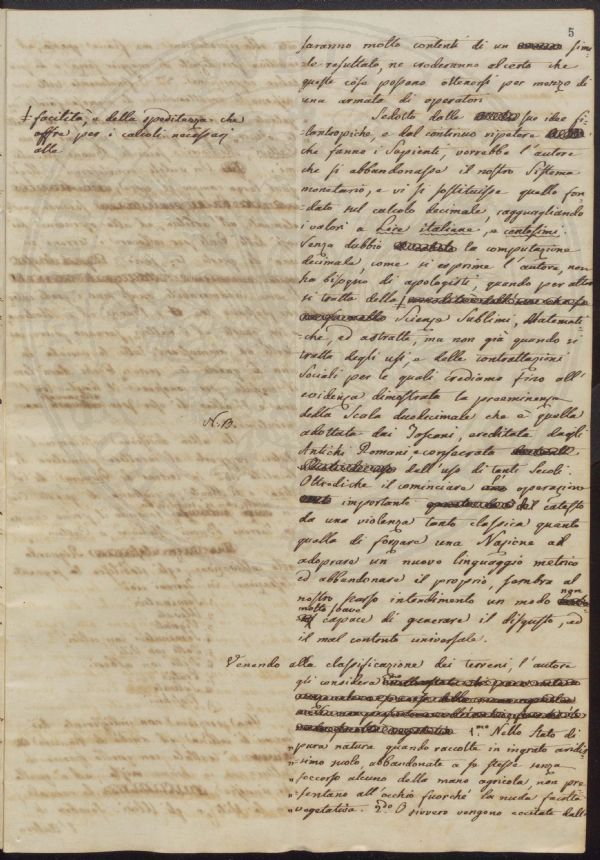 5
saranno molto contenti di un simi
le resultato, ne crederanno al certo che
queste cose possano ottenersi per mezzo di
una armata di operatori.
Sedotto dalle sue idee fi
lantropiche, e dal continuo ripetere
che fanno i Sapienti, vorrebbe l'autore
che si abbandonasse il nostro Sistema
monetario, e vi si sostituisse quello fon
dato sul calcolo decimale, ragguagliando
i valori a Lire italiane, e centesimi.
Senza dubbio la computazione
decimale, come si esprime l'autore, non
ha bisogno di apologisti, quando per altro
si tratta della
‡ facilità, e della speditezza che
offre per i calcoli necessarj
alle
Scienze Sublimi, Matemati
che, ed astratte, ma non già quando si
tratta degli usi, e delle contrattazioni
Sociali per le quali crediamo fino all'
evidenza dimostrata la preeminenza
della Scala duodecimale che è quella
N. B.
adottata dai Toscani, ereditata dagli
Antichi Romani, e consacrata
dall'uso di tanti Secoli.
Oltrediche il cominciare operazione
importante del catasto
da una violenza tanto classica quanto
quella di forzare una Nazione ad
adoprare un nuovo linguaggio metrico
ed abbandonare il proprio, sembra al
nostro scarso intendimento un modo non
molto soave
capace di generare il disgusto, ed
il mal contento universale.
Venendo alla classificazione dei terreni, l'autore
gli considera
1.mo Nello stato di
pura natura quando raccolte in ingrato aridis
simo suolo, abbandonate a se stesse senza
soccorso alcuno della mano agricola, non pre
sentano all'occhio fuorché la nuda facoltà
vegetativa. 2do O sivvero vengono eccitate dall